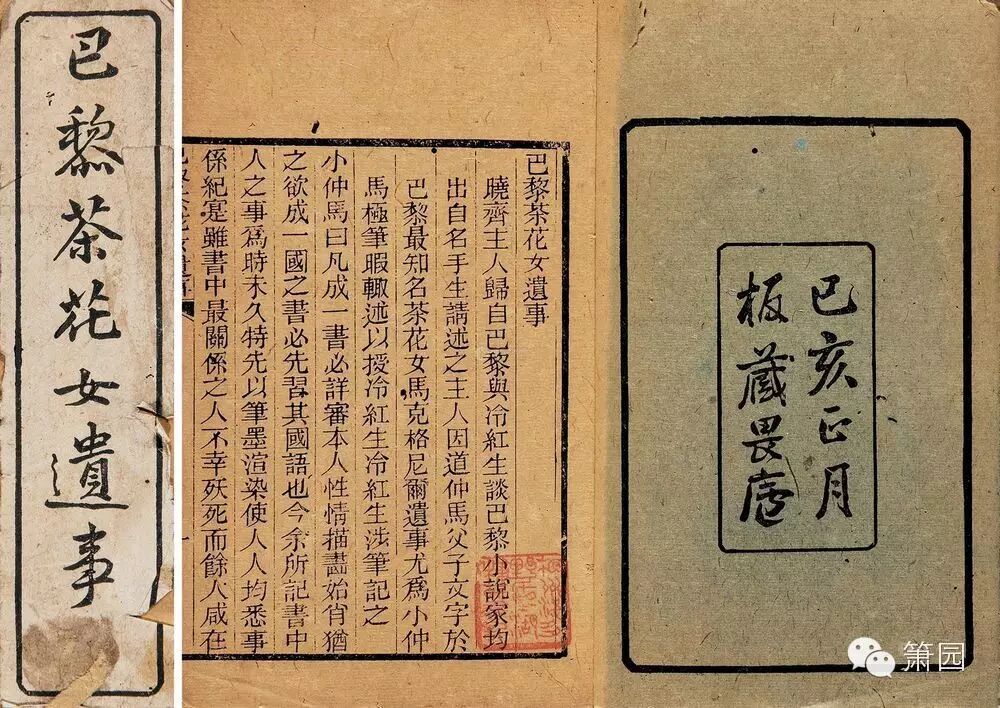 巴黎茶花女遺事
巴黎茶花女遺事
曉齊主人歸自巴黎與冷紅生談巴黎小說家均
出自名手生請述之主人因道仲馬父子文字於
巴黎最知名茶花女馬克格尼爾遺事尤爲小仲
馬極筆暇輙述以授冷紅生冷紅生涉筆記之
小仲馬曰凡成一書必詳審本人性情描畵始肖猶
之欲成一國之書必先習其國語也今余所記書中
人之事爲時未久特先以筆墨渲染使人人均悉事
係紀寔雖書中最關係之人不幸殀死而餘人咸在
己亥正月
板藏畏廬
箫园